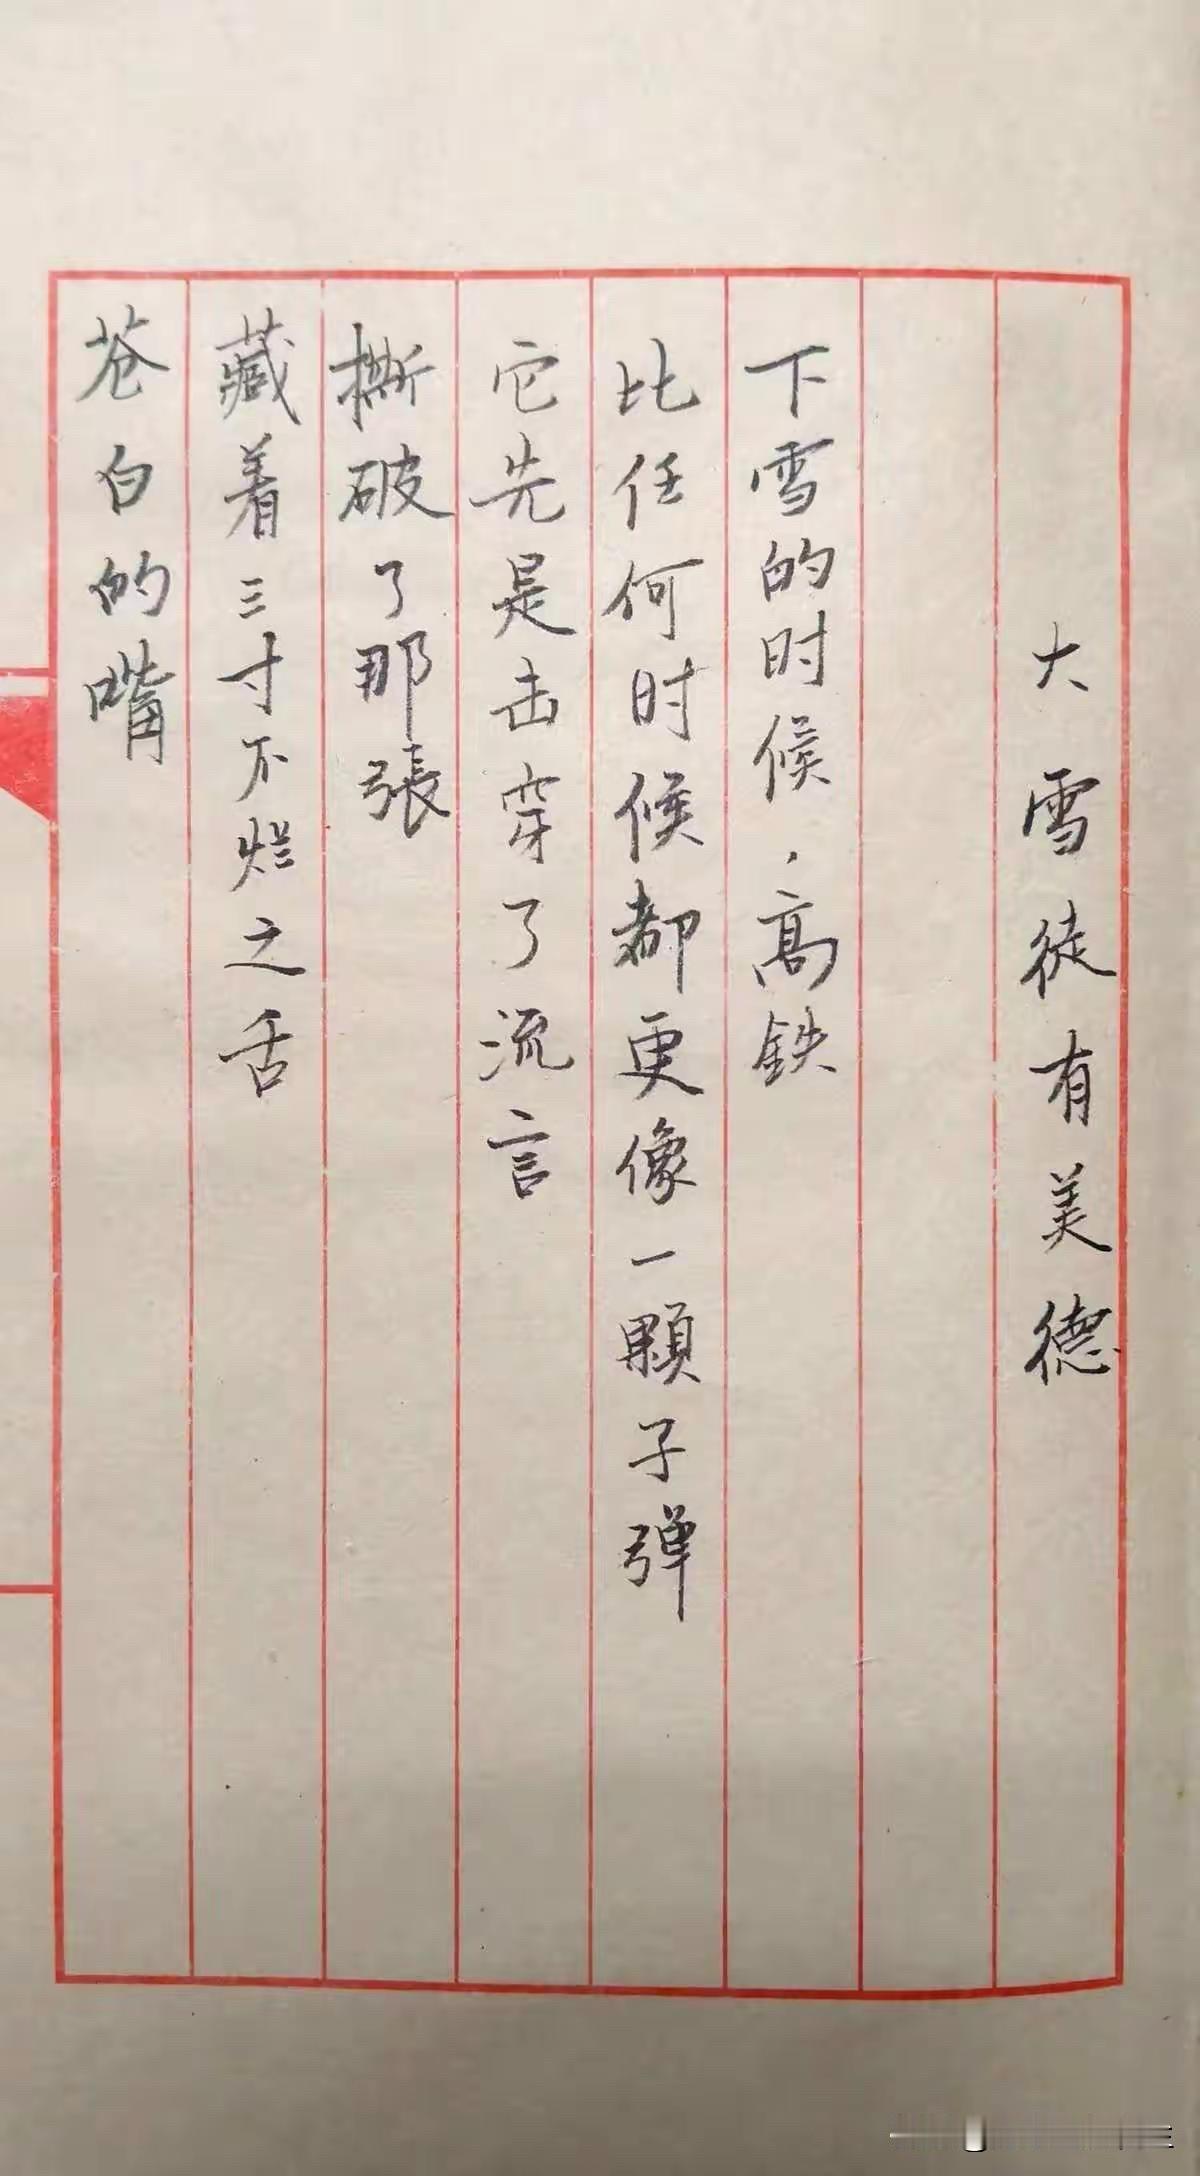 大雪徒有美德
下雪的时候，高鉄
比任何时候都更像一顆子弹
它先是击穿了流言
撕破了那張
藏着三寸不烂之舌
苍白的嘴